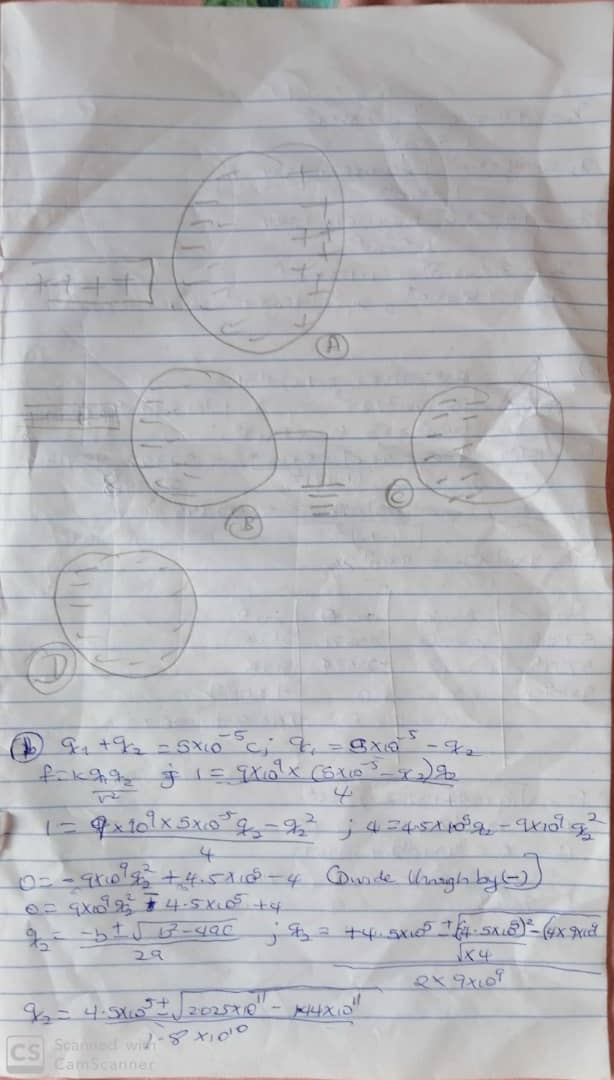 ++++
A
B
C
D
b q₁ + q₂ = 5x10⁻⁵c; q₁ = 5x10⁻⁵ - q₂
f = kq₁q₂/r² ; 1 = 9x10⁹ x (5x10⁻⁵ - x₂)q₂/4
1 = 9x10⁹x5x10⁻⁵q₂ - q₂²/4 ; 4 = 4.5x10⁵q₂ - 9x10⁹q₂²
0 = -9x10⁹q₂² + 4.5x10⁵ - 4 (Divide through by (-))
0 = 9x10⁹q₂² - 4.5x10⁵ + 4
q₂ = -b ± √b² - 4ac/2a ; q₂ = +4.5x10⁵ ± √(4.5x10⁵)² - (4x9x10⁹x4/2x9x10⁹
q₂ = 4.5x10⁵ ± √2025x10¹¹ - 144x10¹¹/1.8x10¹⁰
CS Scanned with
CamScanner